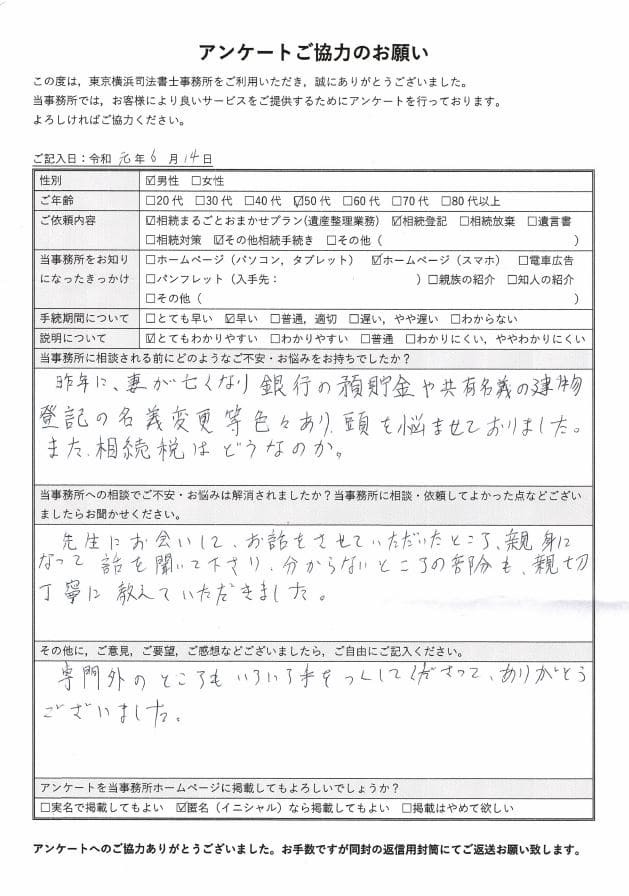 アンケートご協力のお願い
この度は，東京横浜司法書士事務所をご利用いただき，誠にありがとうございました。
当事務所では，お客様により良いサービスをご提供するためにアンケートを行っております。
よろしければご協力ください。
ご記入日：令和 元年 6 月 14日
性別 ☑男性 □女性
ご年齢 □20代 □30代 □40代 ☑50代 □60代 □70代 □80代以上
ご依頼内容 ☑相続まるごとおまかせプラン(遺産整理業務) ☑相続登記 □相続放棄 □遺言書
□相続対策 ☑その他相続手続き □その他（ ）
当事務所をお知り □ホームページ（パソコン，タブレット） ☑ホームページ（スマホ） □電車広告
になったきっかけ □パンフレット（入手先： ）□親族の紹介 □知人の紹介
□その他（ ）
手続期間について □とても早い ☑早い □普通，適切 □遅い，やや遅い □わからない
説明について ☑とてもわかりやすい □わかりやすい □普通 □わかりにくい，ややわかりにくい
当事務所に相談される前にどのようなご不安・お悩みをお持ちでしたか？
昨年に、妻が亡くなり銀行の預貯金や共有名義の建物
登記の名義変更等色々あり、頭を悩ませておりました。
また、相続税はどうなのか。
当事務所への相談でご不安・お悩みは解消されましたか？当事務所に相談・依頼してよかった点などござい
ましたらお聞かせください。
先生にお会いして、お話をさせていただいたところ、親身に
なって話を聞いて下さり、分からないところの部分も、親切
丁寧に教えていただきました。
その他に，ご意見，ご要望，ご感想などございましたら，ご自由にご記入ください。
専門外のところもいろいろ手をつくしてくださって、ありがとう
ございました。
アンケートを当事務所ホームページに掲載してもよろしいでしょうか？
□実名で掲載してもよい ☑匿名（イニシャル）なら掲載してもよい □掲載はやめて欲しい
アンケートへのご協力ありがとうございました。お手数ですが同封の返信用封筒にてご返送お願い致します。